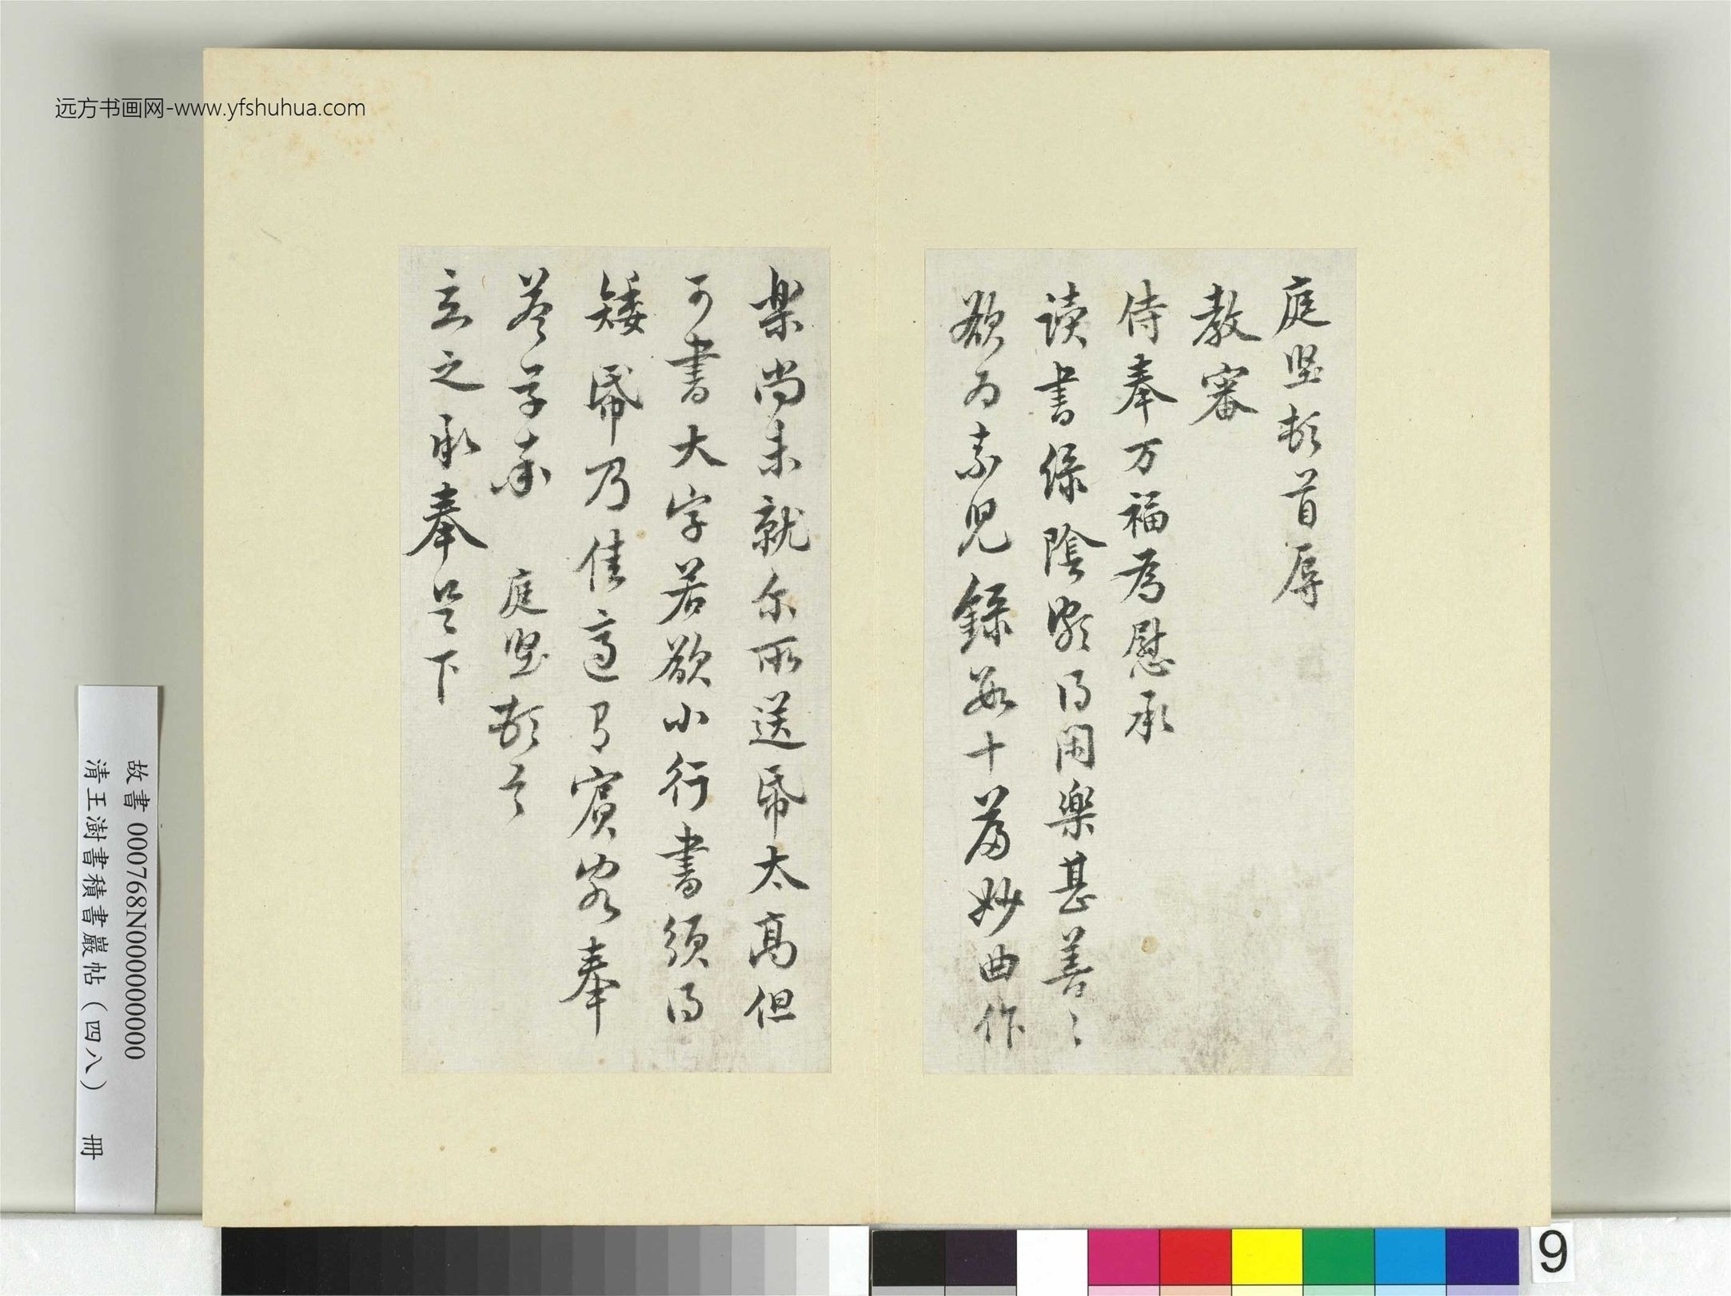 远方书画网-www.yfshuhua.com
庭堅頓首辱
教審
侍奉万福為慰承
读書綠陰頗得閑樂甚善〻
欲為素兒錄數十篇妙曲作
樂尚未就尔所送帋太高但
可書大字若欲小行書須得
矮帋乃佳適有賓客奉
答草率 庭堅頓首
立之承奉足下
故書 000768N000000000
清王澍書積書巖帖（四八） 冊
9